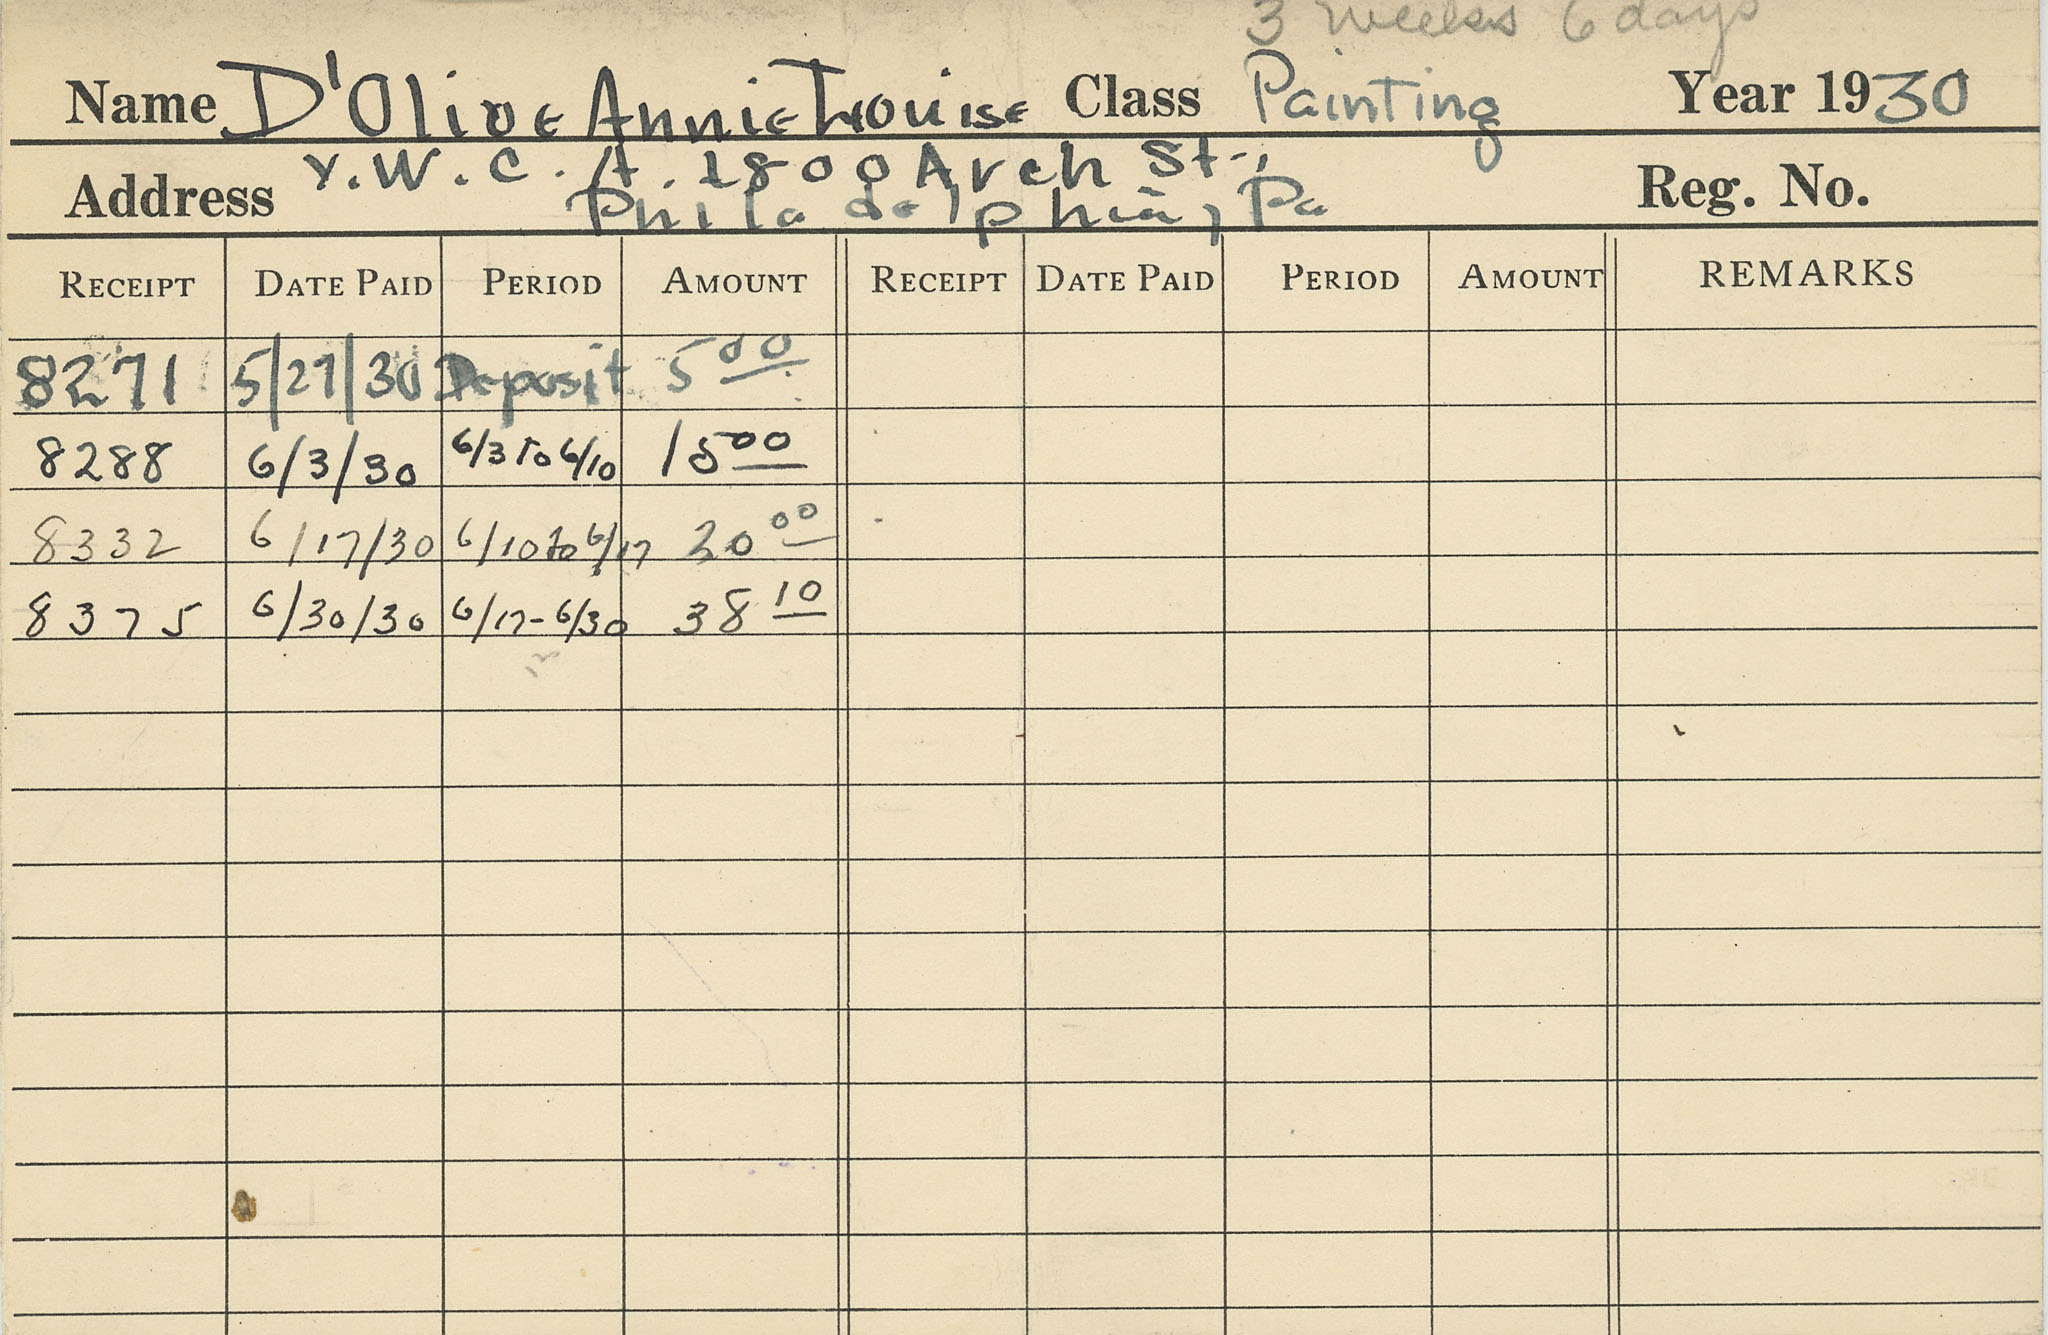 3 weeks 6 days
Name D'Olive Annie Louise Class Painting Year 1930
Address Y.W.C.A. 1800 Arch St.,
Philadelphia, Pa Reg. No.
RECEIPT DATE PAID PERIOD AMOUNT RECEIPT DATE PAID PERIOD AMOUNT REMARKS
8271 5/27/30 Deposit 5 00
8288 6/3/30 6/3 to 6/10 15 00
8332 6/17/30 6/10 to 6/17 20 00
8375 6/30/30 6/17-6/30 38 10